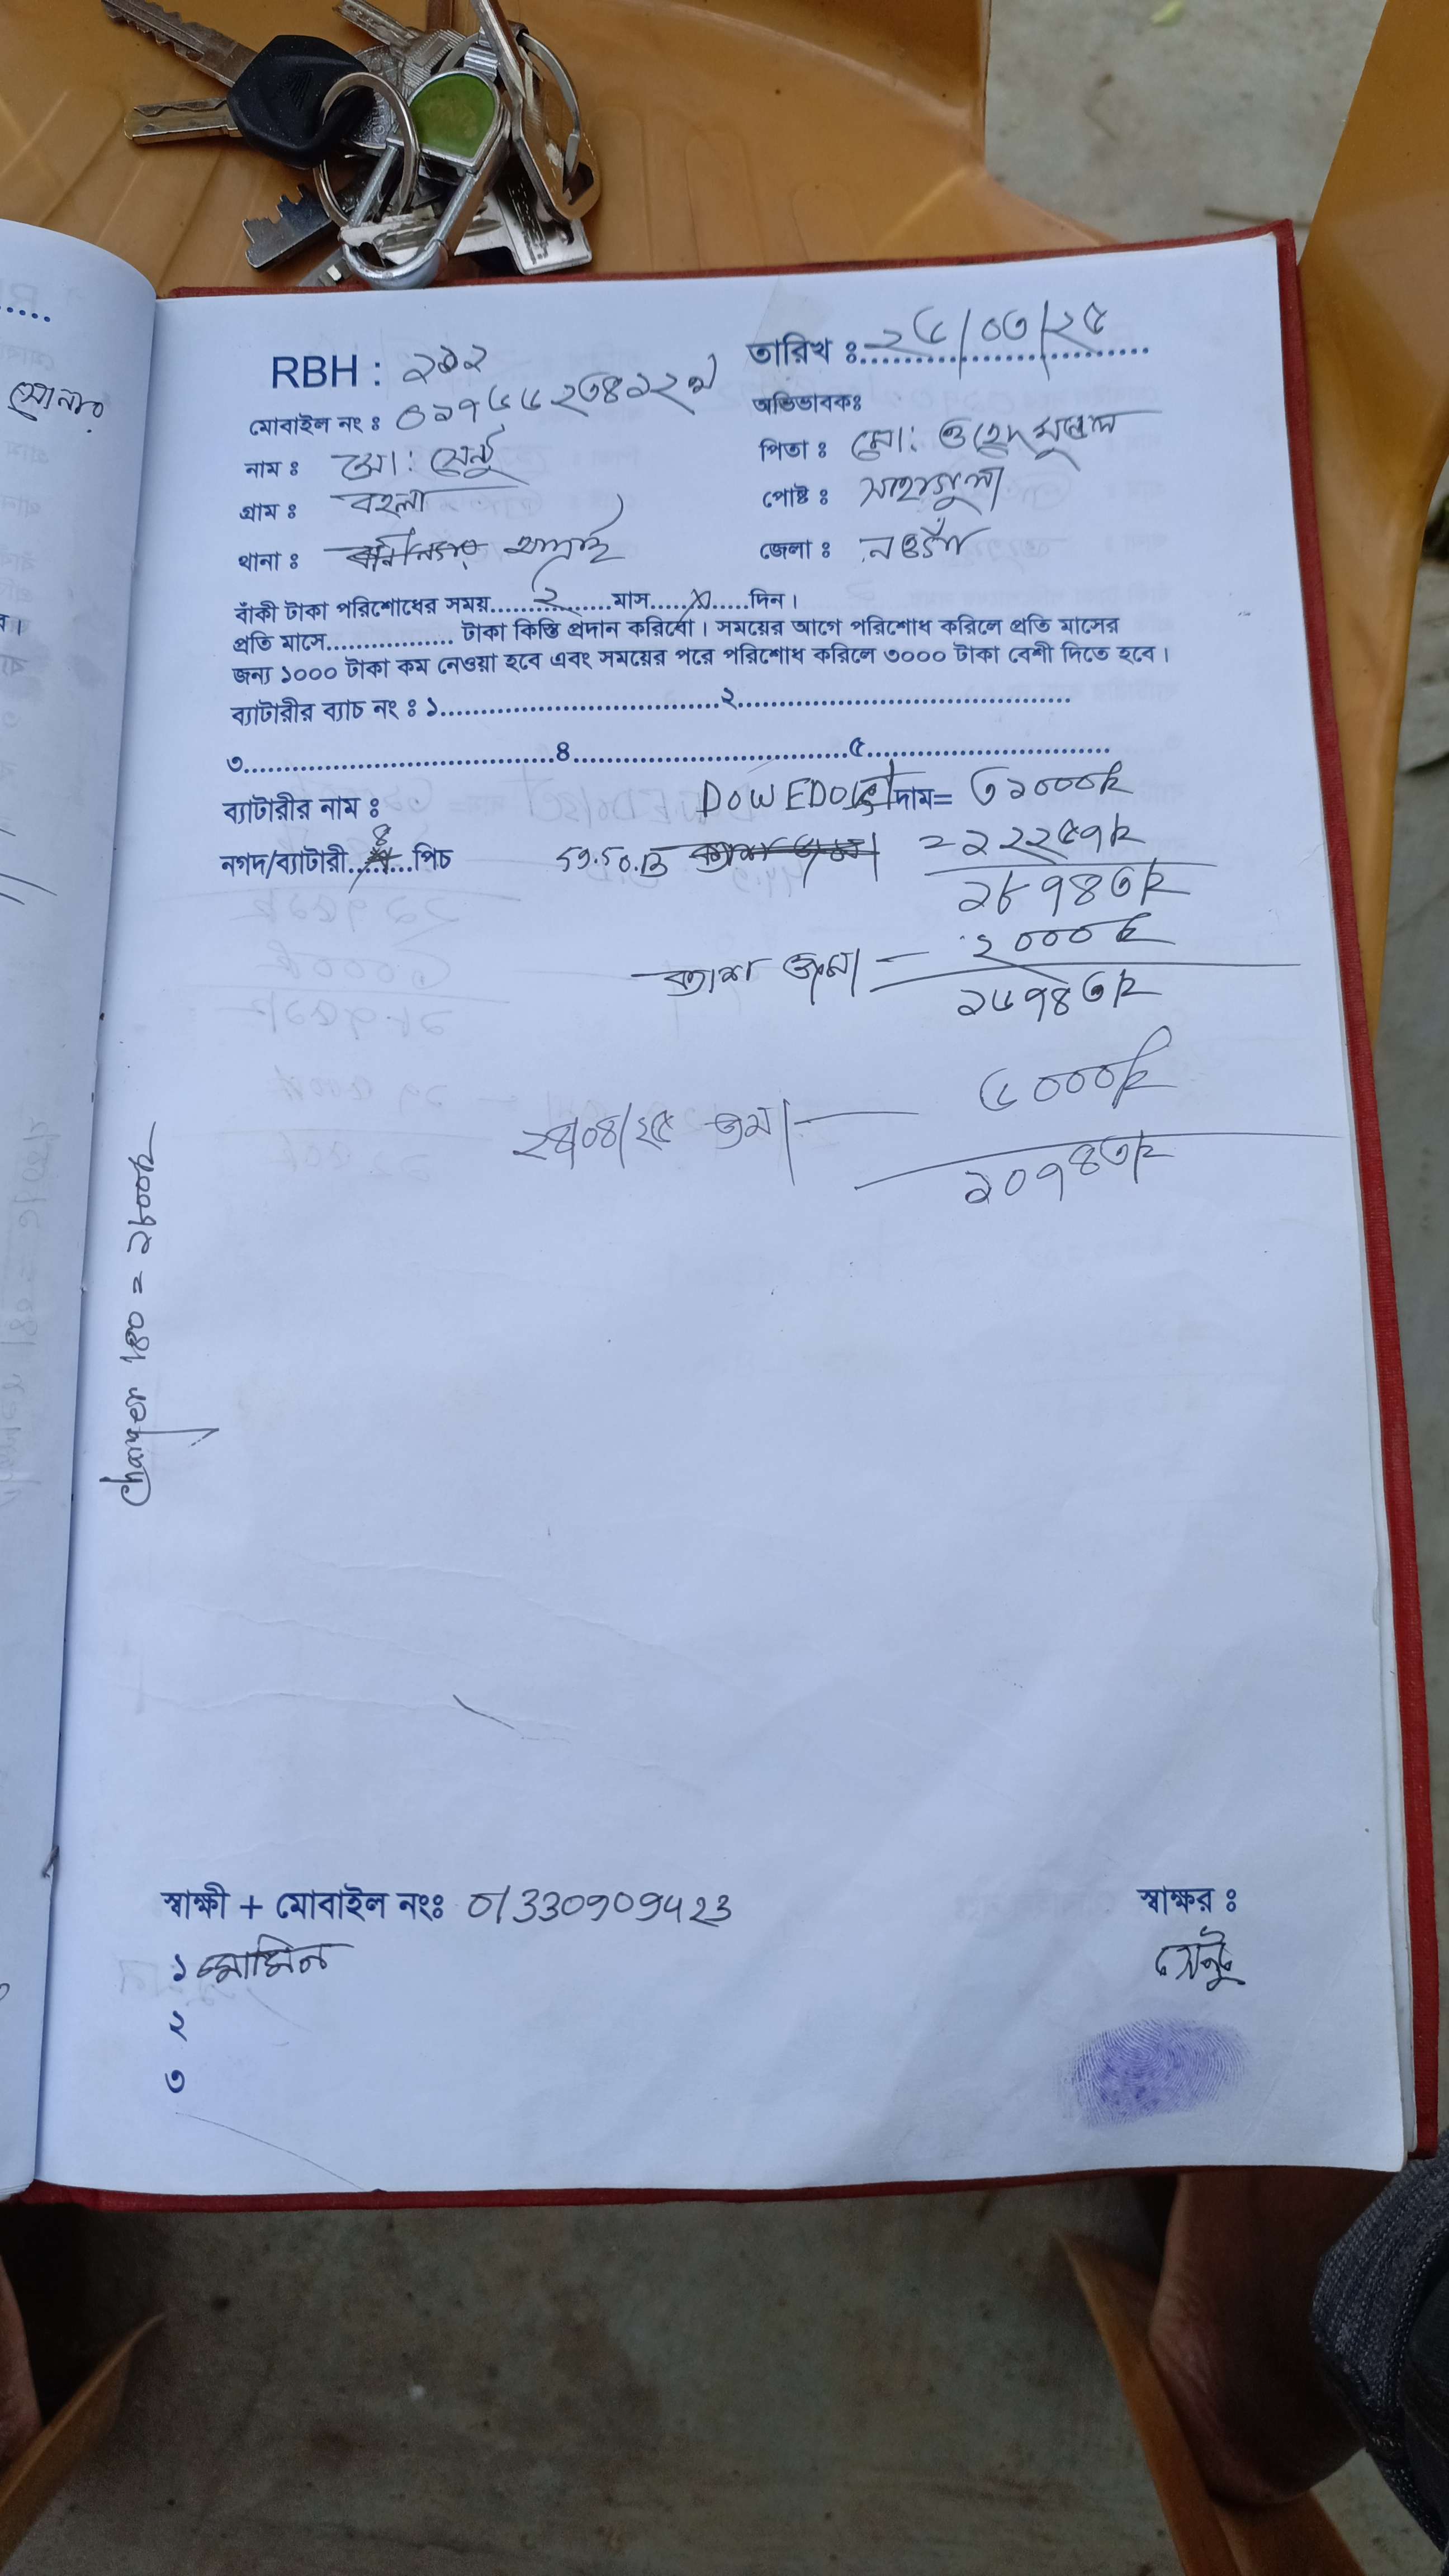 RBH : ২৯২
তারিখ ঃ ২৫/০৩/২৫
মোবাইল নং ঃ
অভিভাবকঃ
নাম ঃ মো: সেন্টু
পিতা ঃ মো:
গ্রাম ঃ বহলা
পোষ্ট ঃ
থানা ঃ
জেলা ঃ নওগাঁ
বাঁকী টাকা পরিশোধের সময়........২........মাস.....X.....দিন।
প্রতি মাসে................ টাকা কিস্তি প্রদান করিবো। সময়ের আগে পরিশোধ করিলে প্রতি মাসের
জন্য ১০০০ টাকা কম নেওয়া হবে এবং সময়ের পরে পরিশোধ করিলে ৩০০০ টাকা বেশী দিতে হবে।
ব্যাটারীর ব্যাচ নং ঃ ১...................................২..........................................
৩.......................................৪...................................৫...............................
ব্যাটারীর নাম ঃ
দাম= ৩১০০০৳
নগদ/ব্যাটারী....৪....পিচ
59.50.B
= ১২২৫৭৳
১৮৭৪৩৳
ক্যাশ জমা = ২০০০৳
১৬৭৪৩৳
২৪/০৪/২৫ জমা — ৬০০০৳
১০৭৪৩৳
Charger 180 = ২৮০০৳
স্বাক্ষী + মোবাইল নংঃ 01330909423
স্বাক্ষর ঃ
১ মোমিন
সেন্টু
২
৩